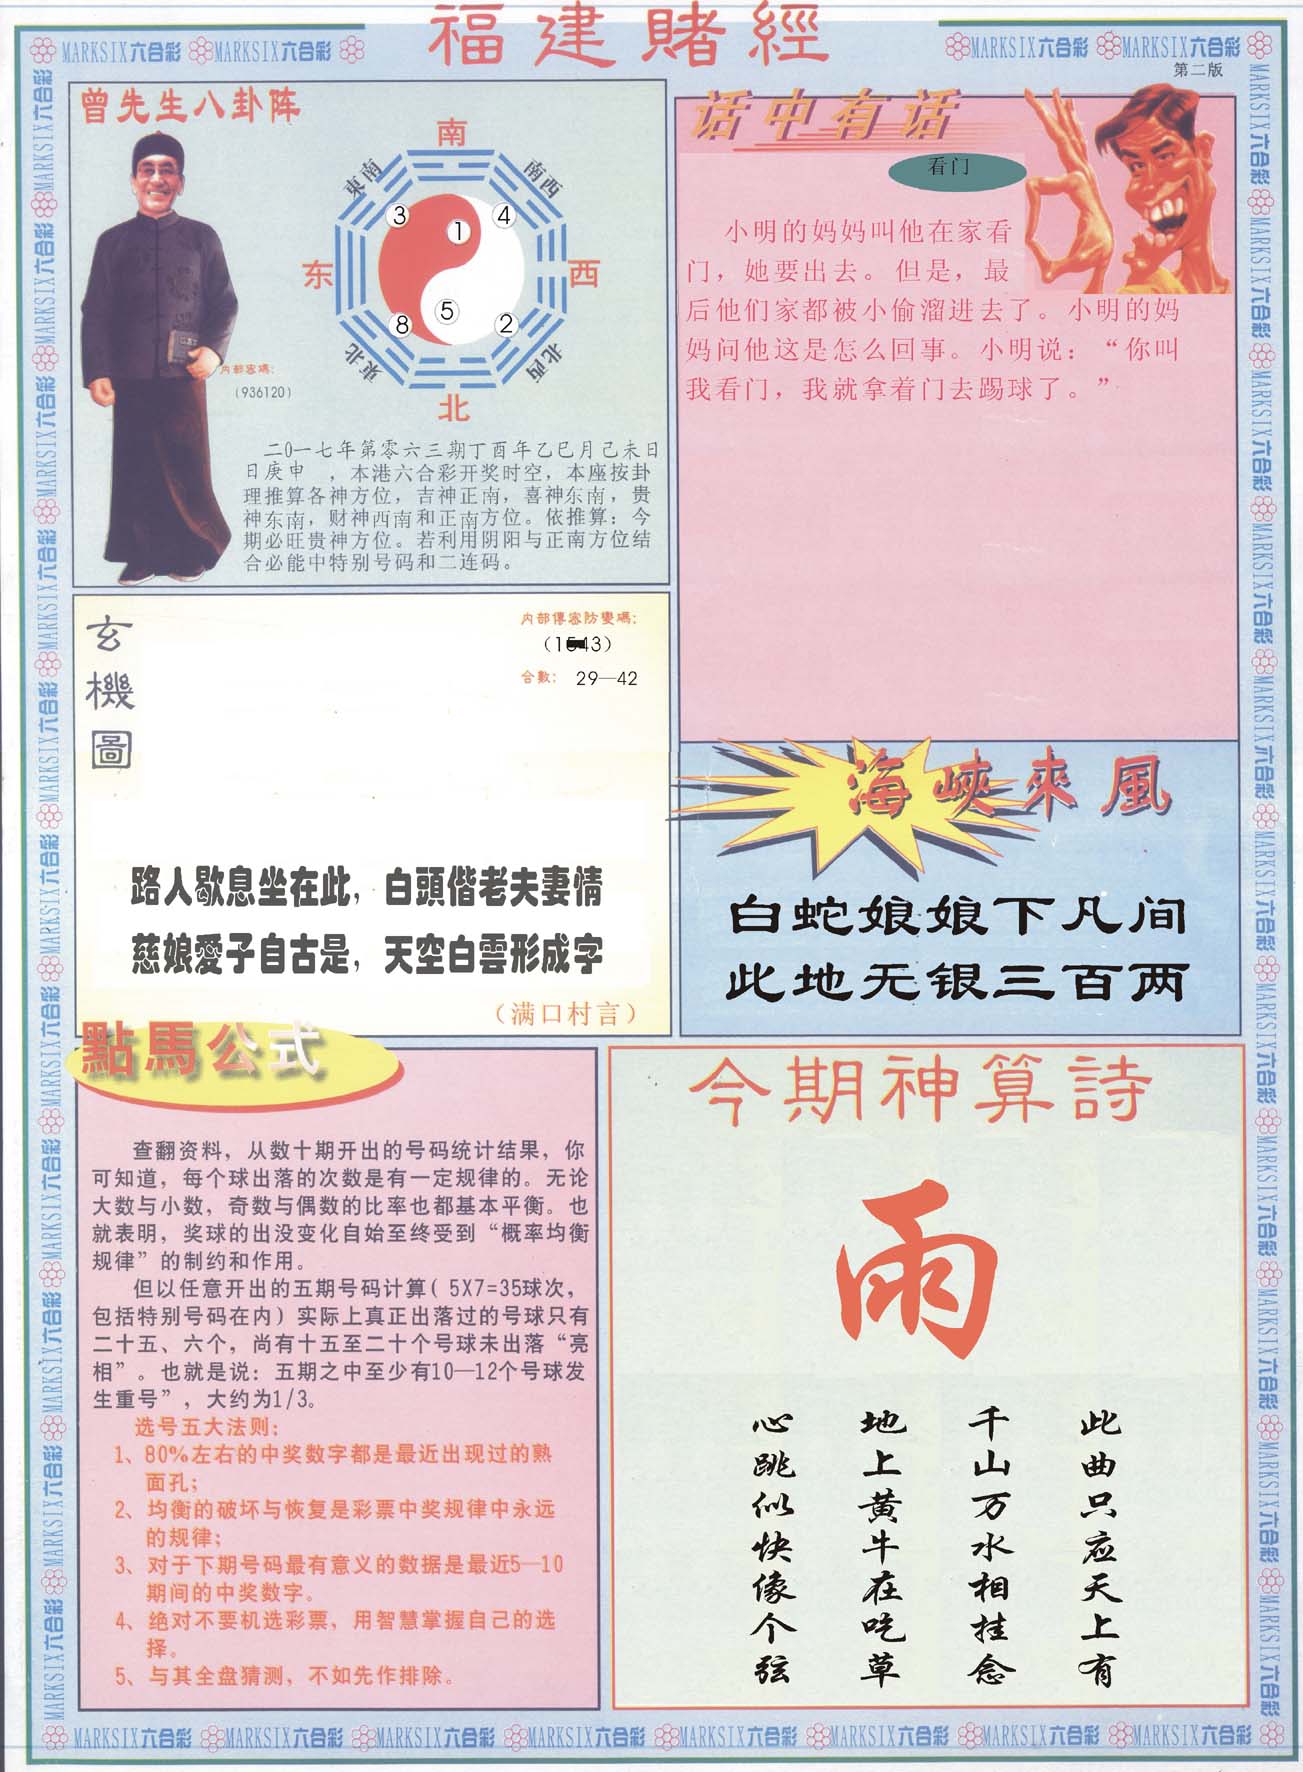 福建賭經
MARKSIX六合彩 MARKSIX六合彩
MARKSIX六合彩 MARKSIX六合彩
第二版
曾先生八卦阵
南
東南
南西
3
4
1
东
西
5
8
2
東北
北西
北
内部密碼：
(936120)
二0一七年第零六三期丁酉年乙巳月己未日
日庚申 ，本港六合彩开奖时空，本座按卦
理推算各神方位，吉神正南，喜神东南，贵
神东南，财神西南和正南方位。依推算：今
期必旺贵神方位。若利用阴阳与正南方位结
合必能中特别号码和二连码。
话中有话
看门
小明的妈妈叫他在家看
门，她要出去。但是，最
后他们家都被小偷溜进去了。小明的妈
妈问他这是怎么回事。小明说：“你叫
我看门，我就拿着门去踢球了。”
玄機圖
内部傳密防變碼：
合數： 29—42
路人歇息坐在此，白頭偕老夫妻情
慈娘愛子自古是，天空白雲形成字
（满口村言）
海峽來風
白蛇娘娘下凡间
此地无银三百两
點馬公式
查翻资料，从数十期开出的号码统计结果，你
可知道，每个球出落的次数是有一定规律的。无论
大数与小数，奇数与偶数的比率也都基本平衡。也
就表明，奖球的出没变化自始至终受到“概率均衡
规律”的制约和作用。
但以任意开出的五期号码计算( 5X7=35球次，
包括特别号码在内）实际上真正出落过的号球只有
二十五、六个，尚有十五至二十个号球未出落“亮
相”。也就是说：五期之中至少有10—12个号球发
生重号”，大约为1/3。
选号五大法则：
1、80%左右的中奖数字都是最近出现过的熟
面孔；
2、均衡的破坏与恢复是彩票中奖规律中永远
的规律；
3、对于下期号码最有意义的数据是最近5—10
期间的中奖数字。
4、绝对不要机选彩票，用智慧掌握自己的选
择。
5、与其全盘猜测，不如先作排除。
今期神算詩
雨
此曲只应天上有
千山万水相挂念
地上黄牛在吃草
心跳似快像个弦
MARKSIX六合彩 MARKSIX六合彩 MARKSIX六合彩 MARKSIX六合彩 MARKSIX六合彩 MARKSIX六合彩 MARKSIX六合彩 MARKSIX六合彩